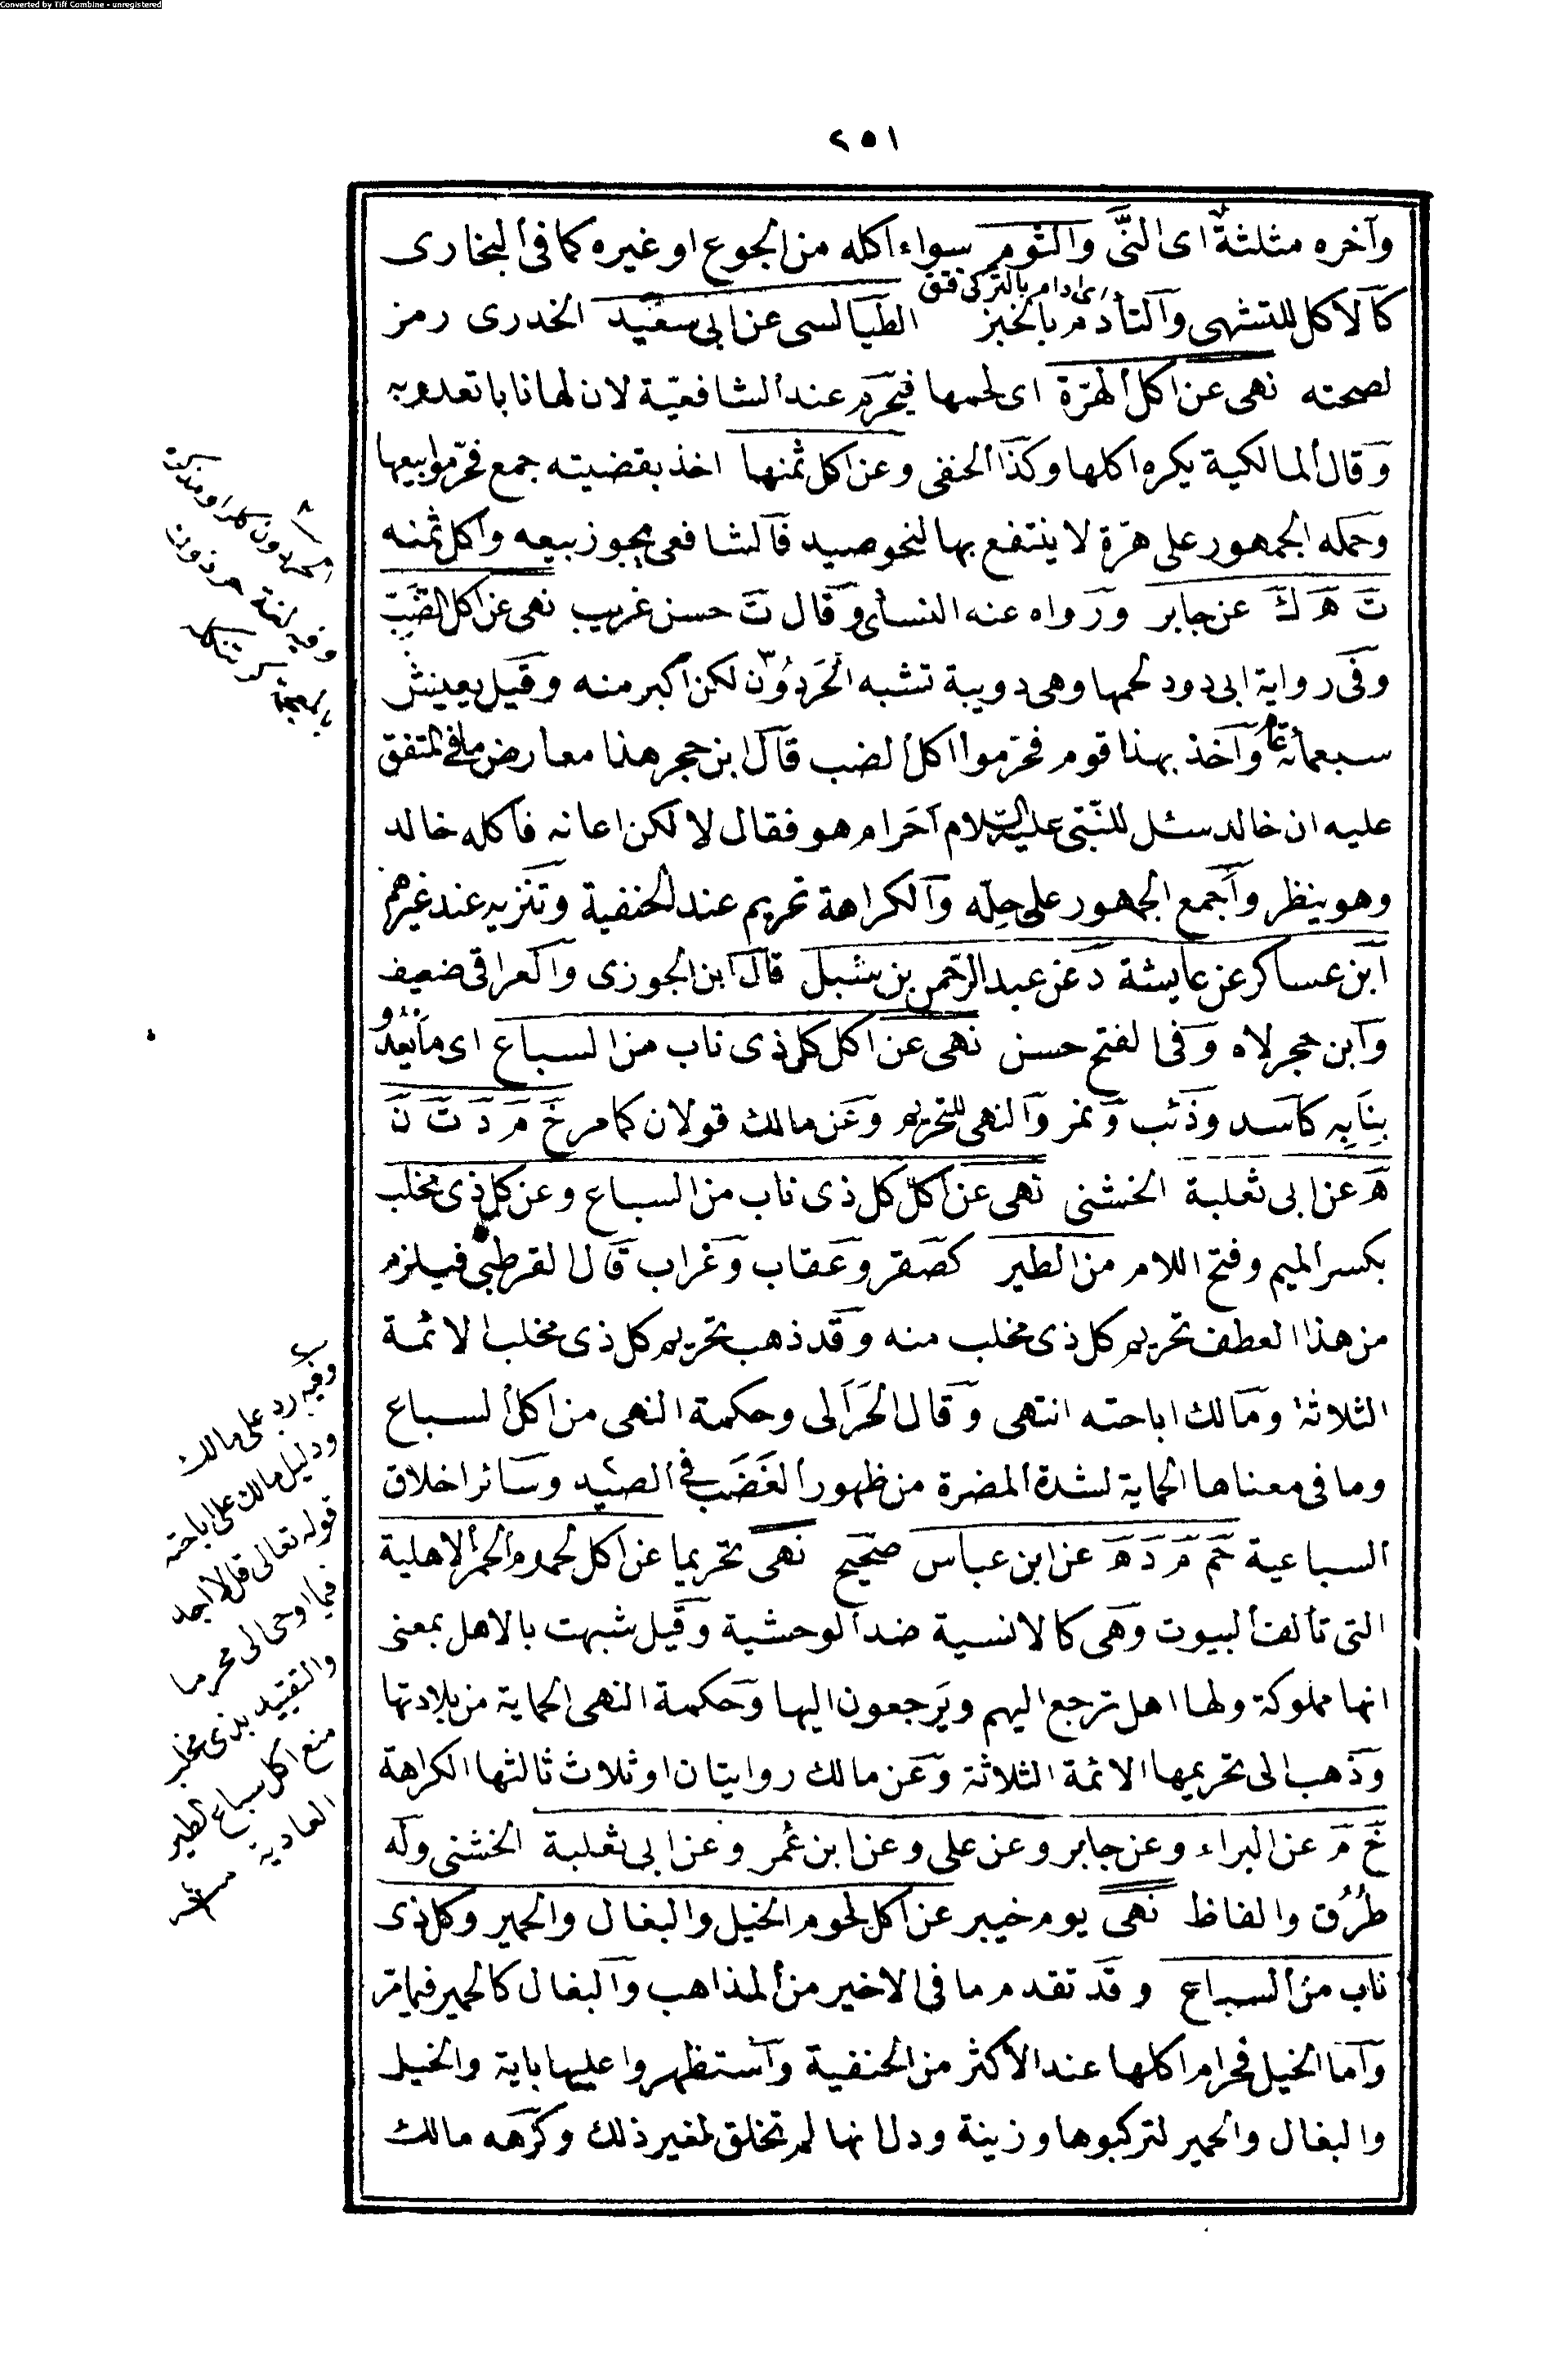 Converted by Tiff Combine - unregistered
٢٥١
وآخره مثلثة اى النىّ والثوم سواء اكله من الجوع او غيره كما فى البخارى
كالاكل للتشهى والتأدم بالخبز الطيالسى عن ابى سعيد الخدرى رمز
اى ادام بالتركى قتق
لصحته نهى عن اكل الهرّة اى لحمها فيحرم عند الشافعيّة لان لها نابا تعدو به
وقال المالكية يكره اكلها وكذا الحنفى وعن اكل ثمنها اخذ بقضيته جمع فحرّموا بيعها
وحمله الجمهور على هرّة لا ينتفع بها لنحو صيد قال الشافعى يجوز بيعه واكل ثمنه
ت ه ك عن جابر ورواه عنه النسأى وقال ت حسن غريب نهى عن اكل الضّبّ
وفى رواية ابى دود لحمها وهى دويبة تشبه الحَردُون لكن اكبر منه وقيل يعيش
سبعمأة عام وآخذ بهذا قوم فحرّموا اكل الضب قال ابن حجر هذا معارض ما فى المتفق
عليه ان خالد سئل للنّبى عليه السّلام احرام هو فقال لا لكن اعافه فاكله خالد
وهو ينظر وأجمع الجمهور على حِلّه والكراهة تحريم عند الحنفية وتنزيه عند غيرهم
ابن عساكر عن عايشة د عن عبد الرّحمن بن شبل قال ابن الجوزى والعراقى ضعيف
وابن حجر لاه وفى الفتح حسن نهى عن اكل كل ذى ناب من السباع اى ما يعدُو
بِنَابِه كاسد وذئب ونمر والنهى للتحريم وعن مالك قولان كما مر خ م د ت ن
ه عن ابى ثعلبة الخشنى نهى عن اكل كل ذى ناب من السباع وعن كل ذى مخلب
بكسر الميم وفتح اللام من الطير كصقر وعقاب وغراب قال القرطبى فيلزم
من هذا العطف تحريم كل ذى مخلب منه وقد ذهب بتحريم كل ذى مخلب الائمة
الثلاثة ومالك اباحته انتهى وقال الحَرَالى وحكمة النهى من اكل السباع
وما فى معناها الحماية لشدة المضرة من ظهور الغَضَب فى الصيد وسائر اخلاق
السباعية حم م د ه عن ابن عباس صحيح نهى تحريما عن اكل لحوم الحمر الاهلية
التى تألف البيوت وهى كالانسية ضد الوحشية وقيل شبهت بالاهل بمعنى
انها مملوكة ولها اهل ترجع اليهم ويَرجعون اليها وحكمة النهى الحماية من بلادتها
وذهب الى تحريمها الائمة الثلاثة وعن مالك روايتان او ثلاث ثالثها الكراهة
خ م عن البراء وعن جابر وعن على وعن ابن عُمر وعن ابى ثعلبة الخشنى وله
طُرُق والفاظ نهى يوم خيبر عن اكل لحوم الخيل والبغال والحمير وكل ذى
ناب من السباع وقد تقدم ما فى الاخير من المذاهب والبغال كالحمير فيما مرّ
واما الخيل فحرام اكلها عند الاكثر من الحنفية واستظهروا عليها باية والخيل
والبغال والحمير لتركبوها وزينة ودل انها لم تخلق لغير ذلك وكرّهه مالك
وفيه لغة حرذون
وفيه رد على مالك
ودليل مالك على اباحته
قوله تعالى قل لا اجد
فيما اوحى الى محرما
والتقييد بذى مخلب
منع اكل سباع الطير
العادية